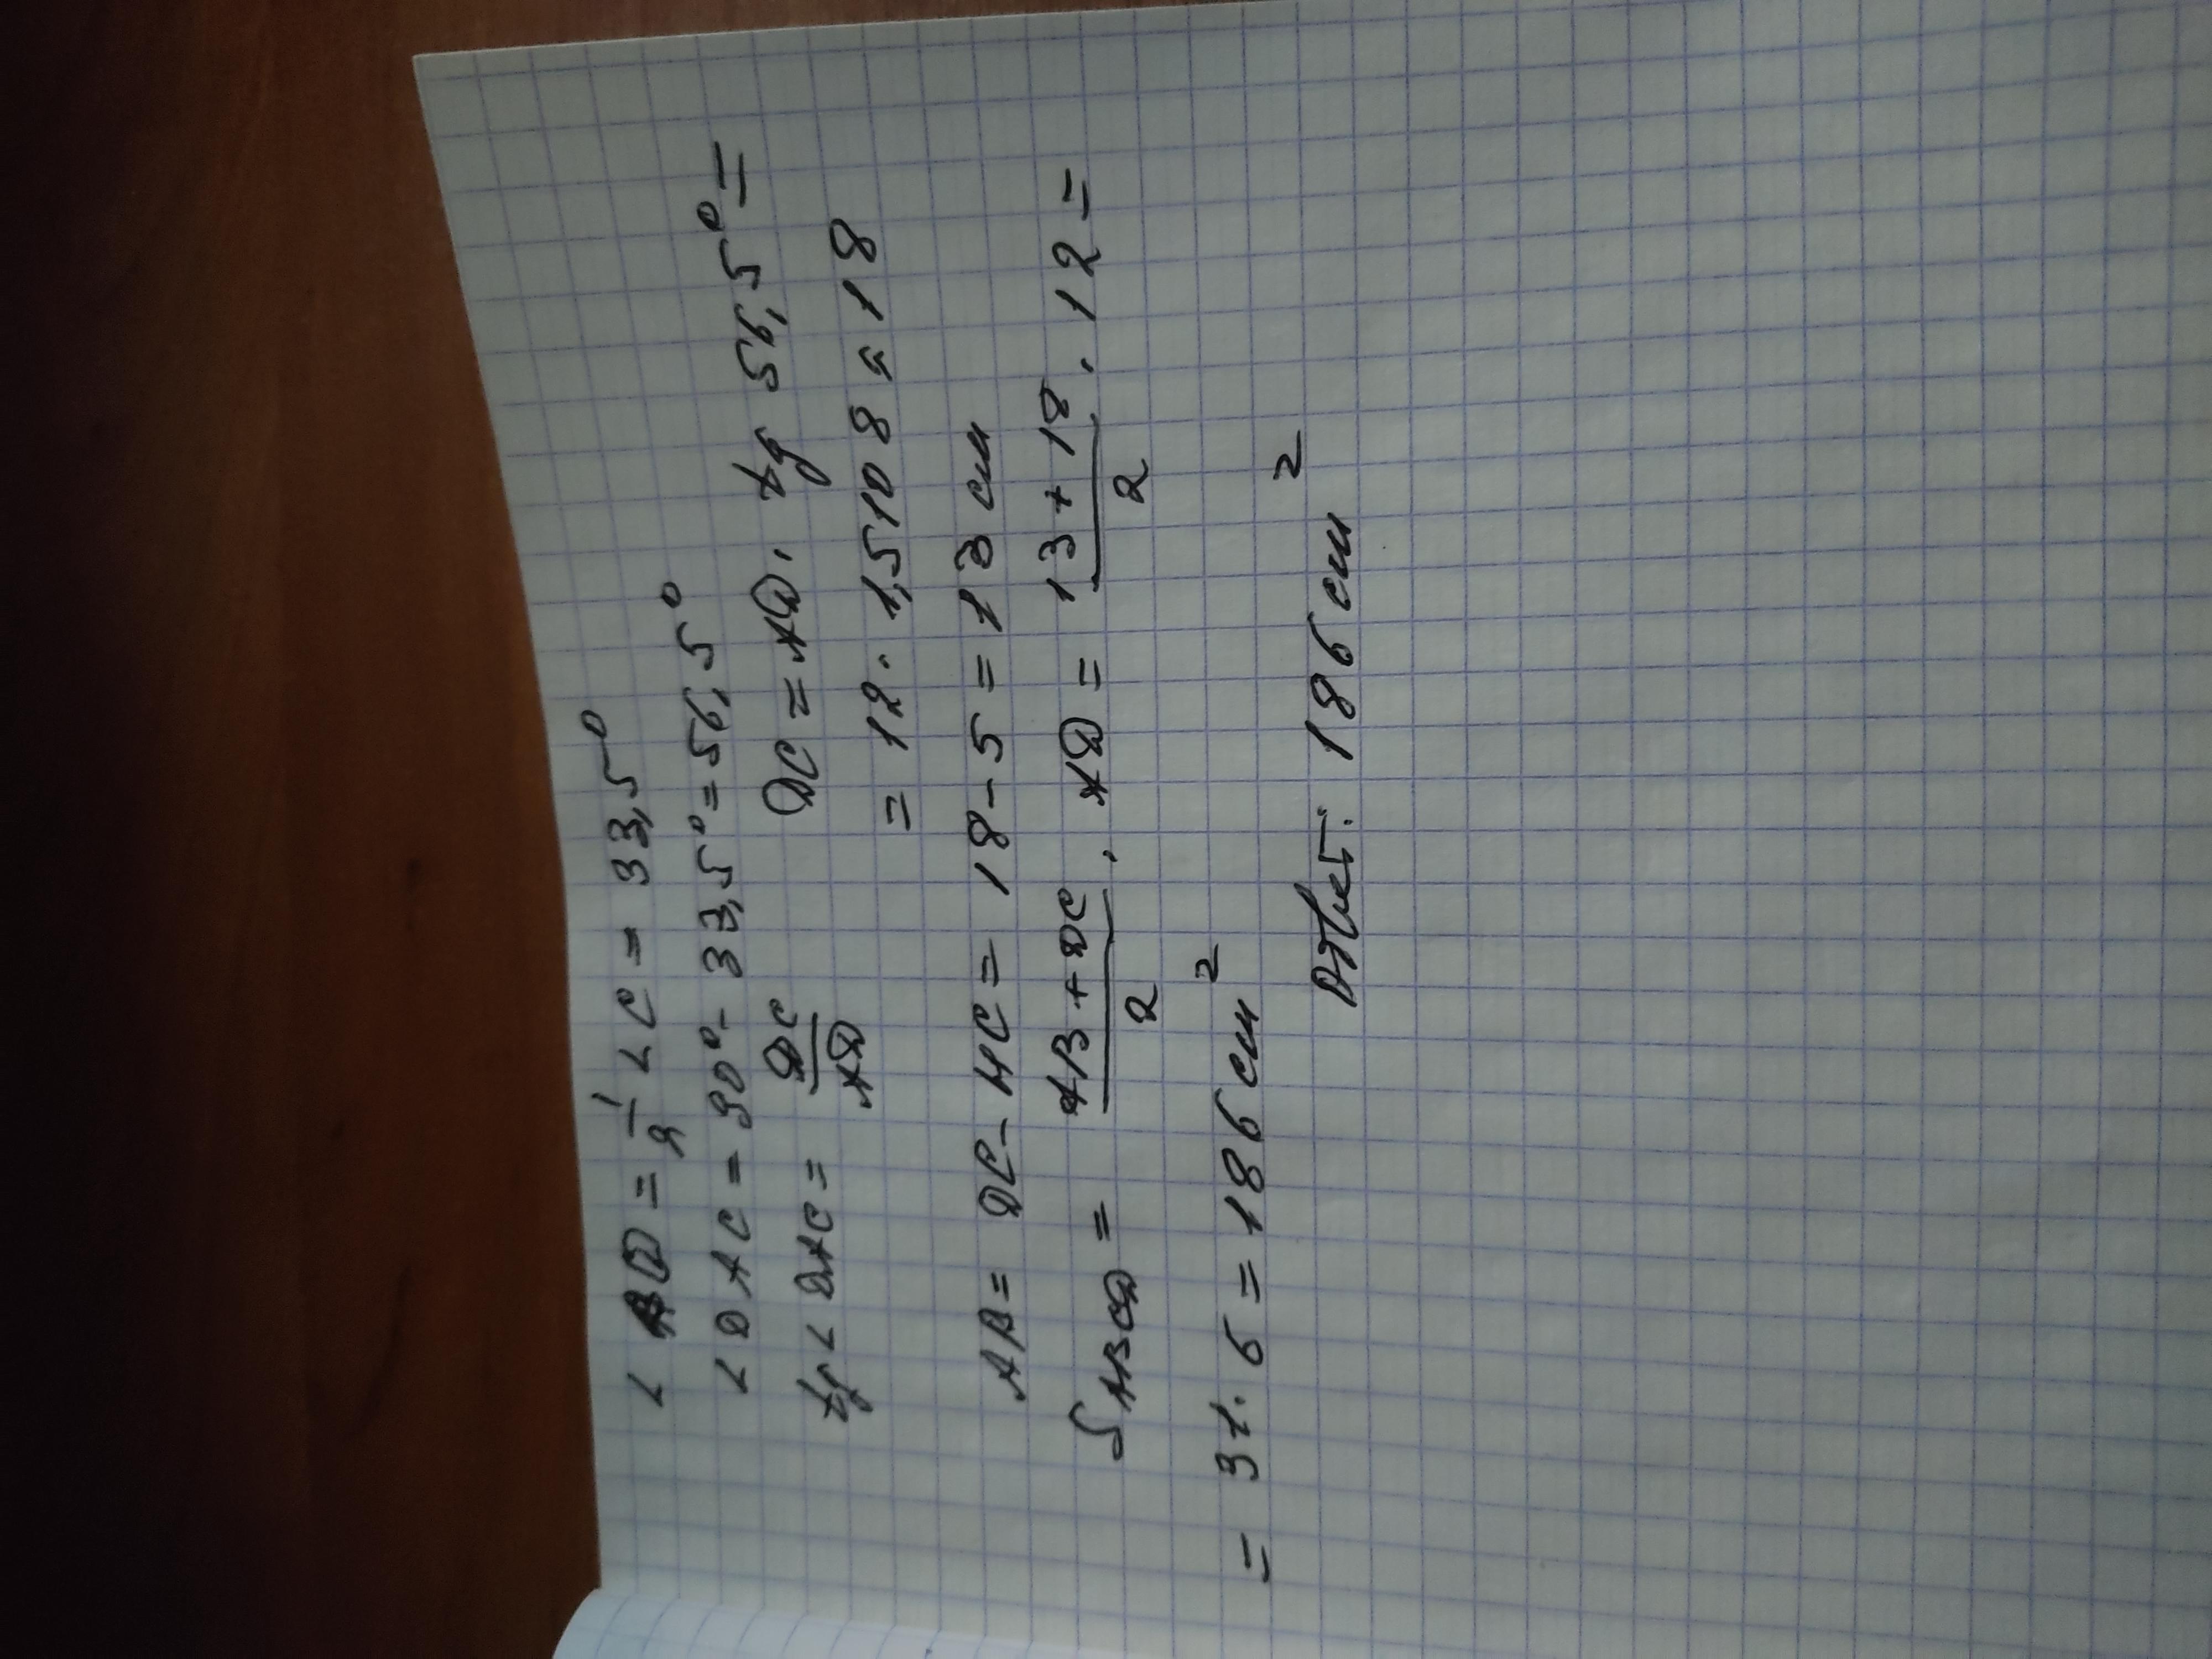 ∠ D = 1/2 ∠C = 33,5°
∠ DAC = 90° - 33,5° = 56,5°
tg ∠ DAC = DC/AD DC = AD · tg 56,5° =
= 12 · 1,5108 ≈ 18
AB = DC - HC = 18 - 5 = 13 см
S ABCD = (AB + DC)/2 · AD = (13 + 18)/2 · 12 =
= 31 · 6 = 186 см²
Ответ: 186 см²